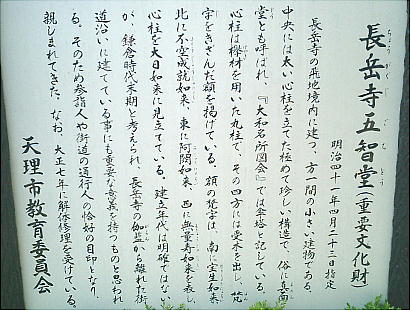 長岳寺五智堂(重要文化財)
明治四十一年四月二十三日指定
長岳寺の飛地境内に建つ、方一間の小さい建物である。
中央には太い心柱を立てた極めて珍しい構造で、俗に真面
堂とも呼ばれ、『大和名所図会』では傘塔と記している。
心柱は欅材を用いた丸柱で、その四方には受木を出し、梵
字をきざんだ額を掲げている。額の梵字は、南に宝生如来、
北に不空成就如来、東に阿閦如来、西に無量寿如来を表し、
心柱を大日如来に見立てている。建立年代は明確ではない
が、鎌倉時代末期と考えられ、長岳寺の伽藍から離れた街
道沿いに建てている事にも重要な意義を持つものと思われ
る。そのため参詣人や街道の通行人の恰好の目印となり、
親しまれてきた。なお、大正七年に解体修理を受けている。
天理市教育委員会